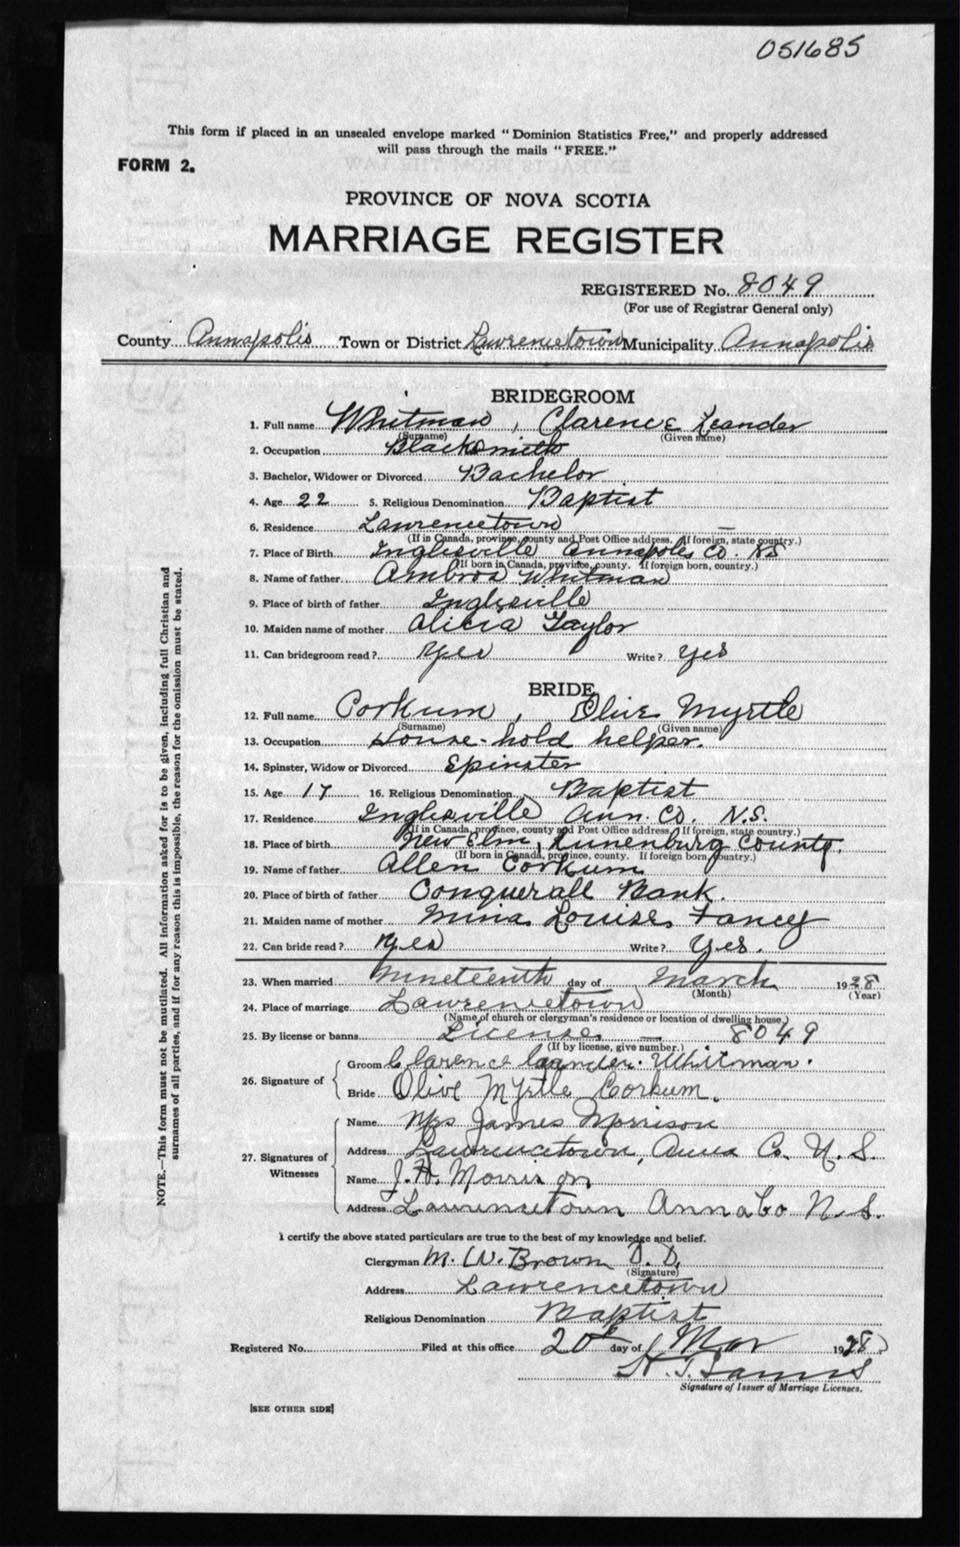 051685
This form if placed in an unsealed envelope marked "Dominion Statistics Free," and properly addressed
will pass through the mails "FREE."
FORM 2.
PROVINCE OF NOVA SCOTIA
MARRIAGE REGISTER
REGISTERED No. 8049
(For use of Registrar General only)
County Annapolis Town or District Lawrencetown Municipality Annapolis
BRIDEGROOM
1. Full name Whitman, Clarence Leander
(Surname) (Given name)
2. Occupation Blacksmith
3. Bachelor, Widower or Divorced Bachelor
4. Age 22 5. Religious Denomination Baptist
6. Residence Lawrencetown
(If in Canada, province, county and Post Office address. If foreign, state country.)
7. Place of Birth Inglisville Annapolis Co. NS
(If born in Canada, province, county. If foreign born, country.)
8. Name of father Ambros Whitman
9. Place of birth of father Inglisville
10. Maiden name of mother Alicia Taylor
11. Can bridegroom read? Yes Write? Yes
BRIDE
12. Full name Corkum, Olive Myrtle
(Surname) (Given name)
13. Occupation House-hold helper.
14. Spinster, Widow or Divorced Spinster
15. Age 17 16. Religious Denomination Baptist
17. Residence Inglisville Ann. Co. N.S.
(If in Canada, province, county and Post Office address. If foreign, state country.)
18. Place of birth New Elm, Lunenburg County.
(If born in Canada, province, county. If foreign born, country.)
19. Name of father Allen Corkum
20. Place of birth of father Conquerall Bank.
21. Maiden name of mother Mina Louise Fancy
22. Can bride read? Yes Write? Yes.
23. When married Nineteenth day of March 1928
(Month) (Year)
24. Place of marriage Lawrencetown
(Name of church or clergyman's residence or location of dwelling house.)
25. By license or banns License — 8049
(If by license, give number.)
26. Signature of Groom Clarence Leander. Whitman.
Bride Olive Myrtle Corkum.
27. Signatures of Witnesses Name Mrs James Morrison
Address Lawrencetown, Anna Co. N. S.
Name J. H. Morrison
Address Lawrencetown Anna Co N.S.
I certify the above stated particulars are true to the best of my knowledge and belief.
Clergyman M. W. Brown D. D.
(Signature)
Address Lawrencetown
Religious Denomination Baptist
Registered No. Filed at this office 20th day of Mar 1928
Signature of Issuer of Marriage Licenses.
[SEE OTHER SIDE]
NOTE.—This form must not be mutilated. All information asked for is to be given, including full Christian and
surnames of all parties, and if for any reason this is impossible, the reason for the omission must be stated.